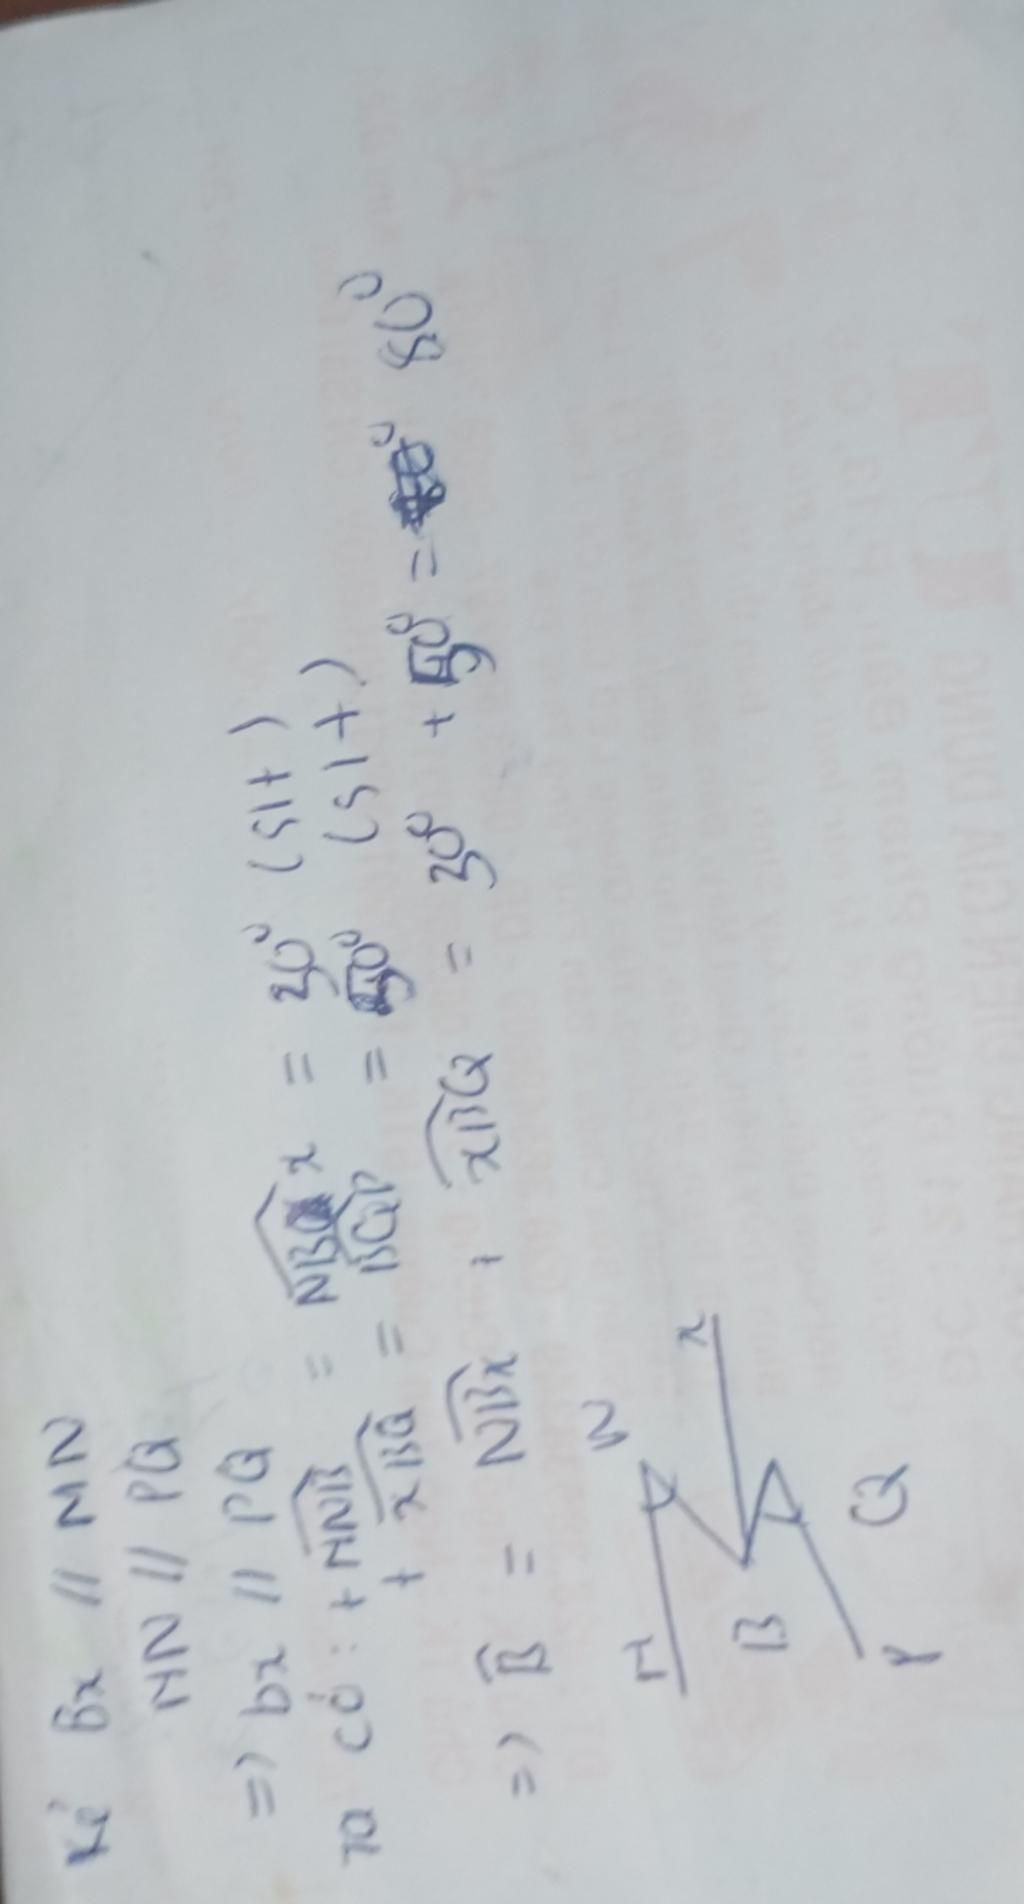 Kẻ Bx // MN
MN // PQ
=> bx // PQ
Ta có: + MNB = NBx = 30° (slt)
+ xBQ = BQP = 50° (slt)
=> B = NBx + xBQ = 30° + 50° = 80°
M N
x
B
P Q